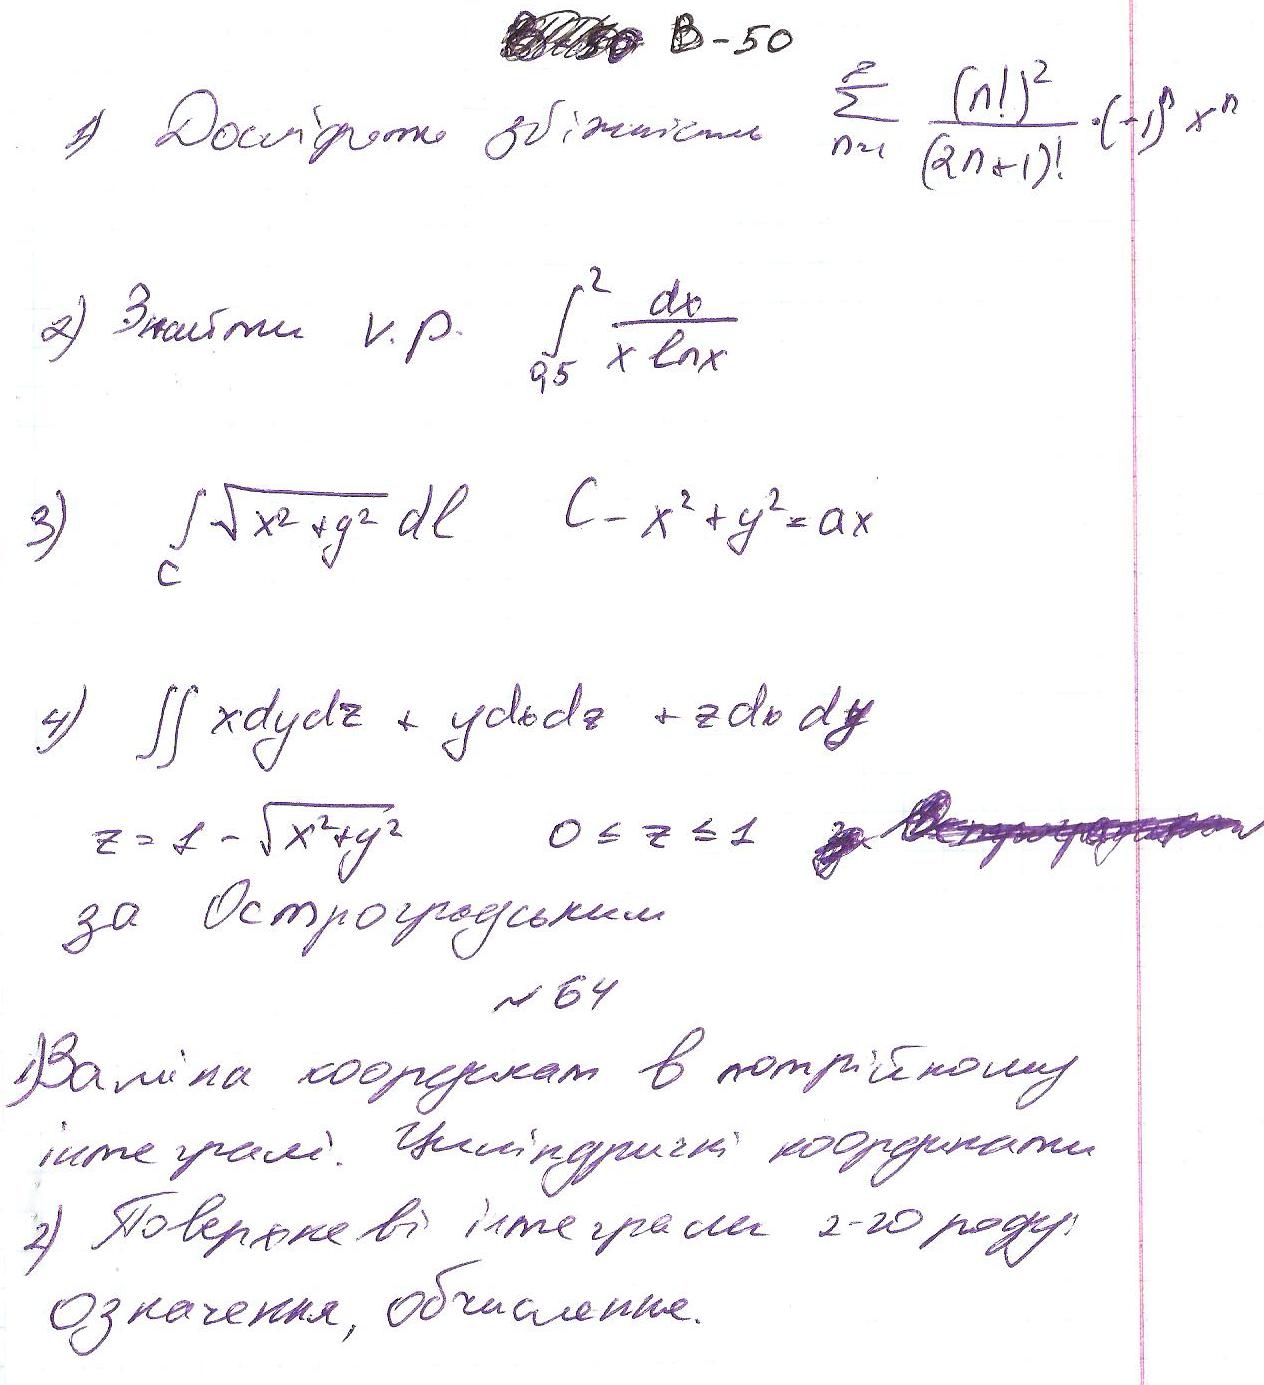 В-50
1) Дослідити збіжність ∑ n=1 (n!)² / (2n+1)! · (-1)ⁿ xⁿ
2) Знайти v.p. ∫ 0,5 2 dx / x ln x
3) ∫ C √(x²+y²) dl C - x²+y²=ax
4) ∬ xdydz + ydxdz + zdxdy
z = 1 - √(x²+y²) 0 ≤ z ≤ 1
за Остроградським
№ 64
1) Заміна координат в потрійному
інтегралі. Циліндричні координати
2) Поверхневі інтеграли 2-го роду:
означення, обчислення.